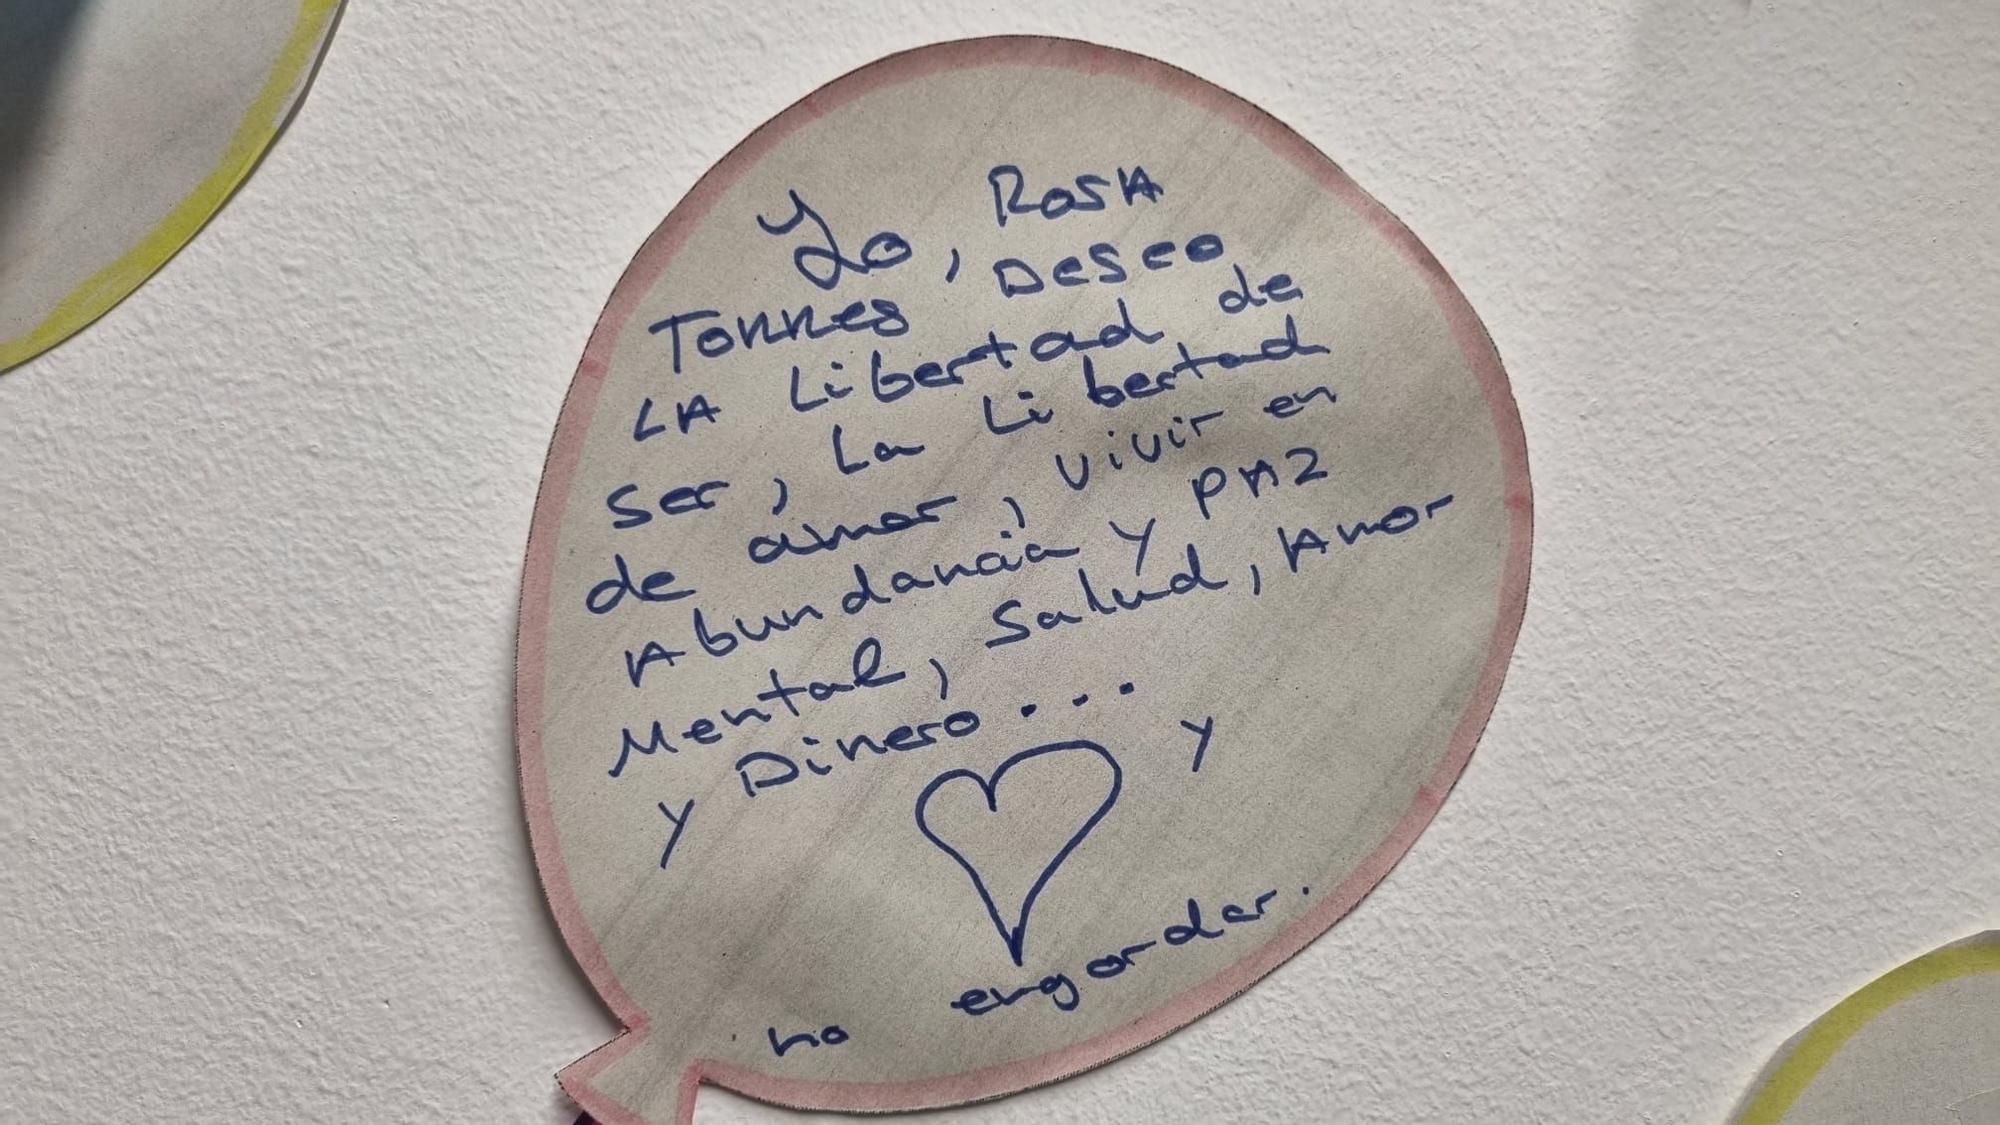 Yo, ROSA
TORRES DESEO
LA Libertad de
ser, La Libertad
de amar, vivir en
Abundancia y PAZ
Mental, Salud, Amor
y Dinero...
y
no engordar.